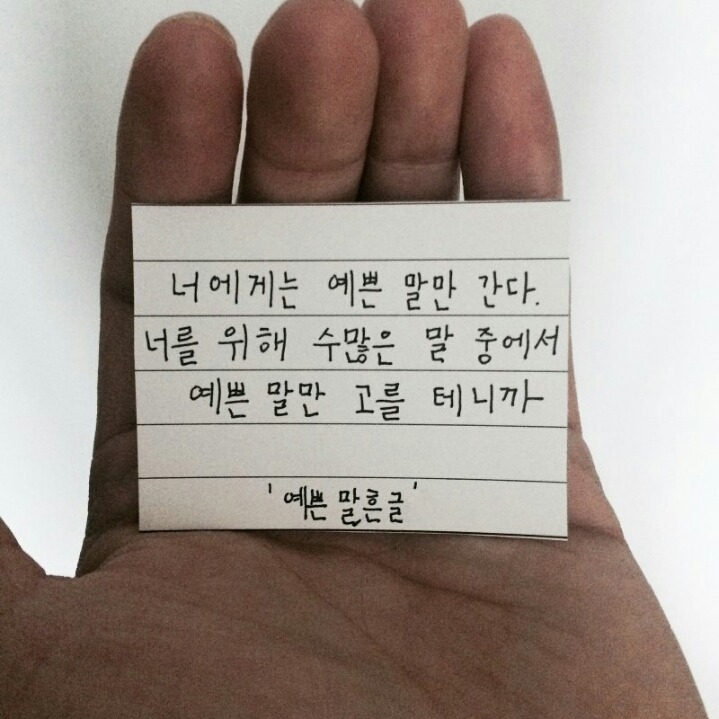 너에게는 예쁜 말만 간다.
너를 위해 수많은 말 중에서
예쁜 말만 고를 테니까
'예쁜 말, 흔글'